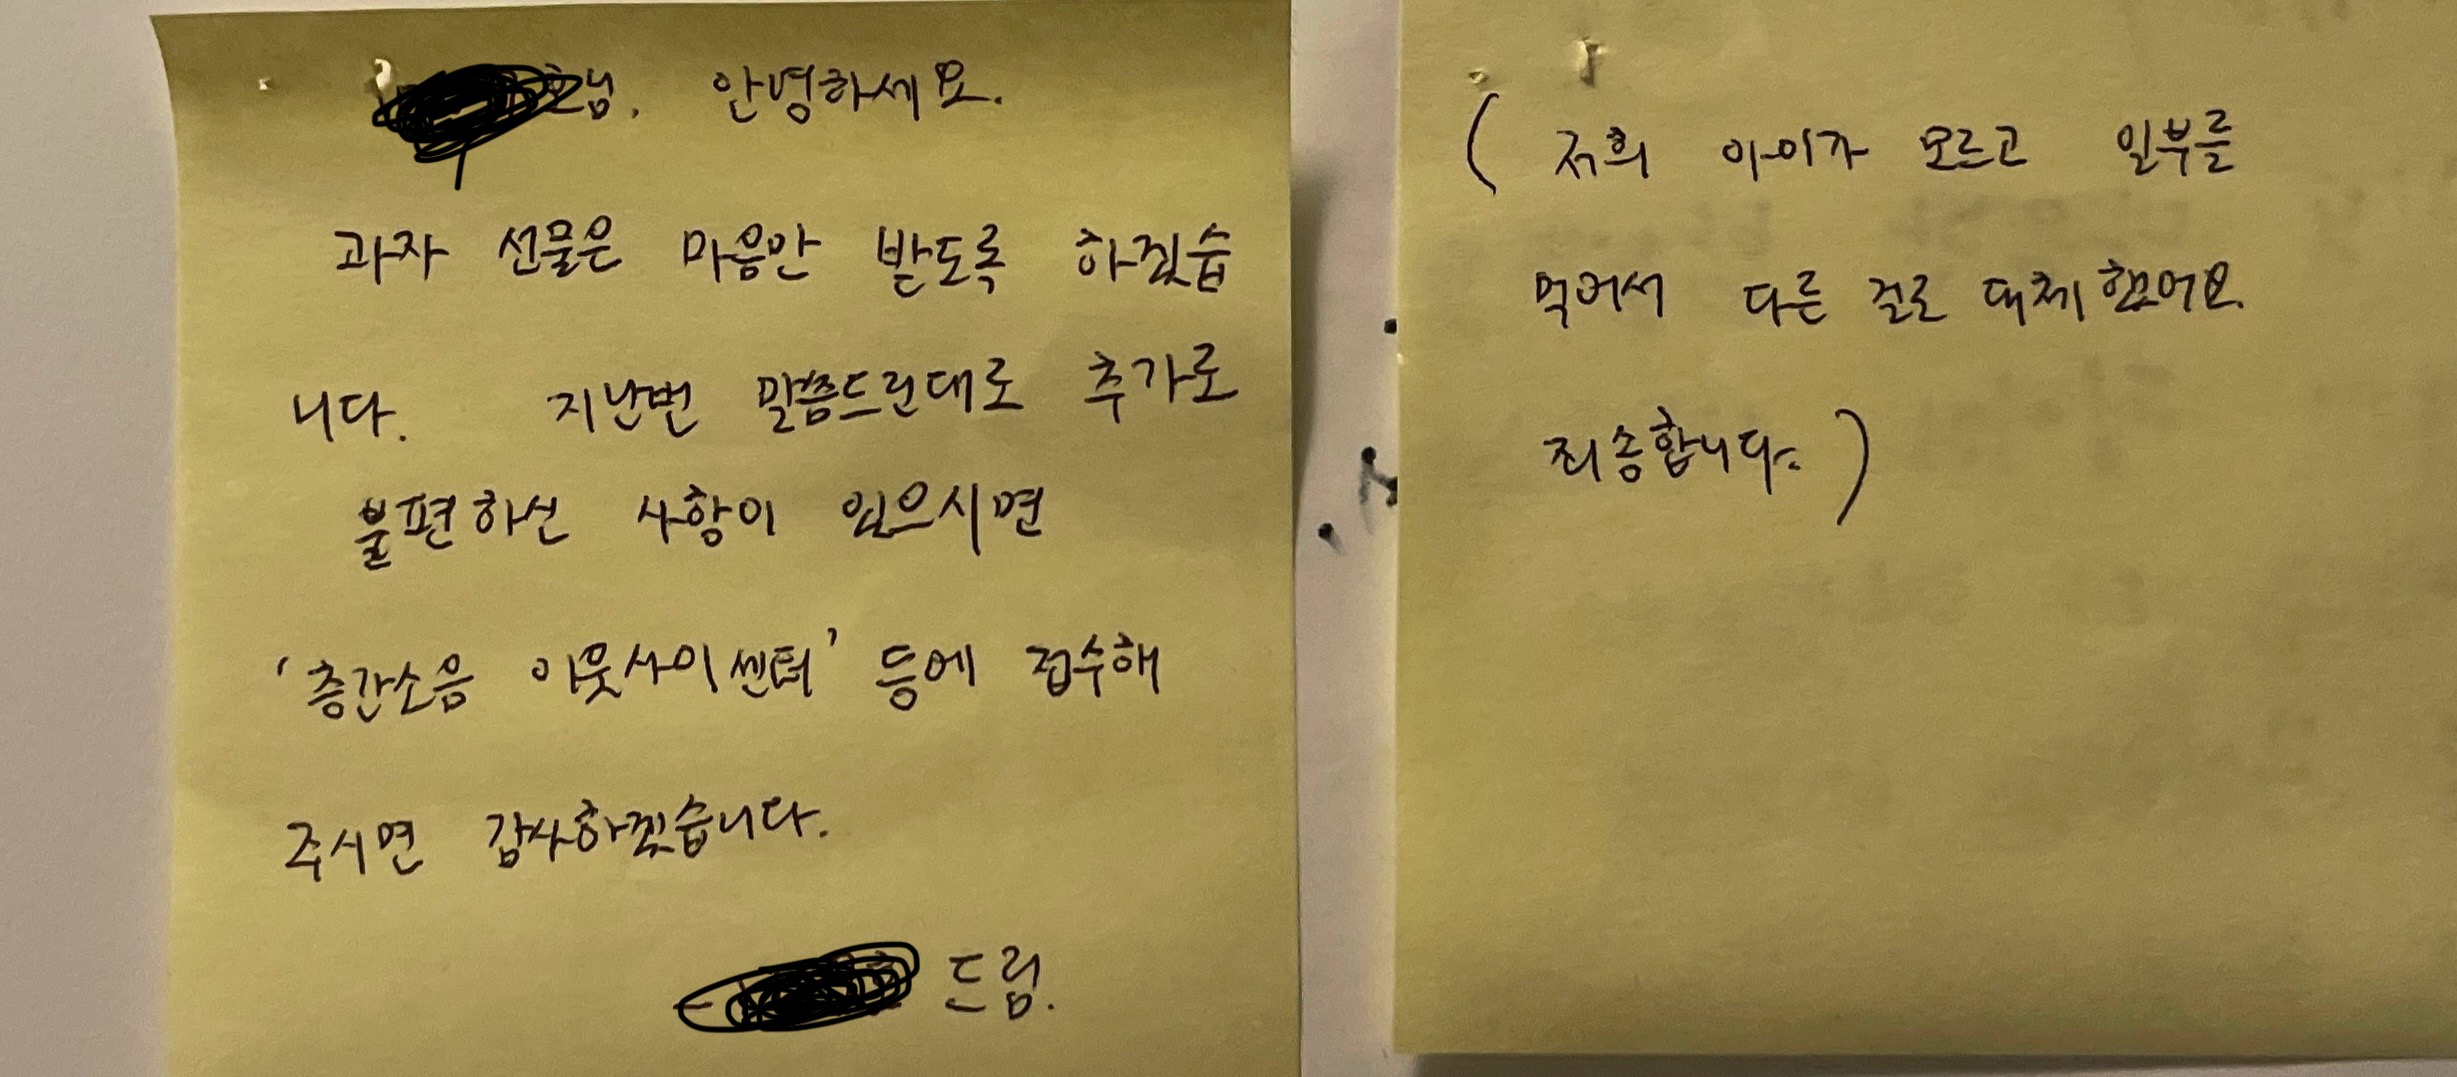 호님. 안녕하세요.
과자 선물은 마음만 받도록 하겠습
니다. 지난번 말씀드린대로 추가로
불편하신 사항이 있으시면
'층간소음 이웃사이센터' 등에 접수해
주시면 감사하겠습니다.
드림.
( 저희 아이가 모르고 일부를
먹어서 다른 걸로 대체했어요.
죄송합니다. )